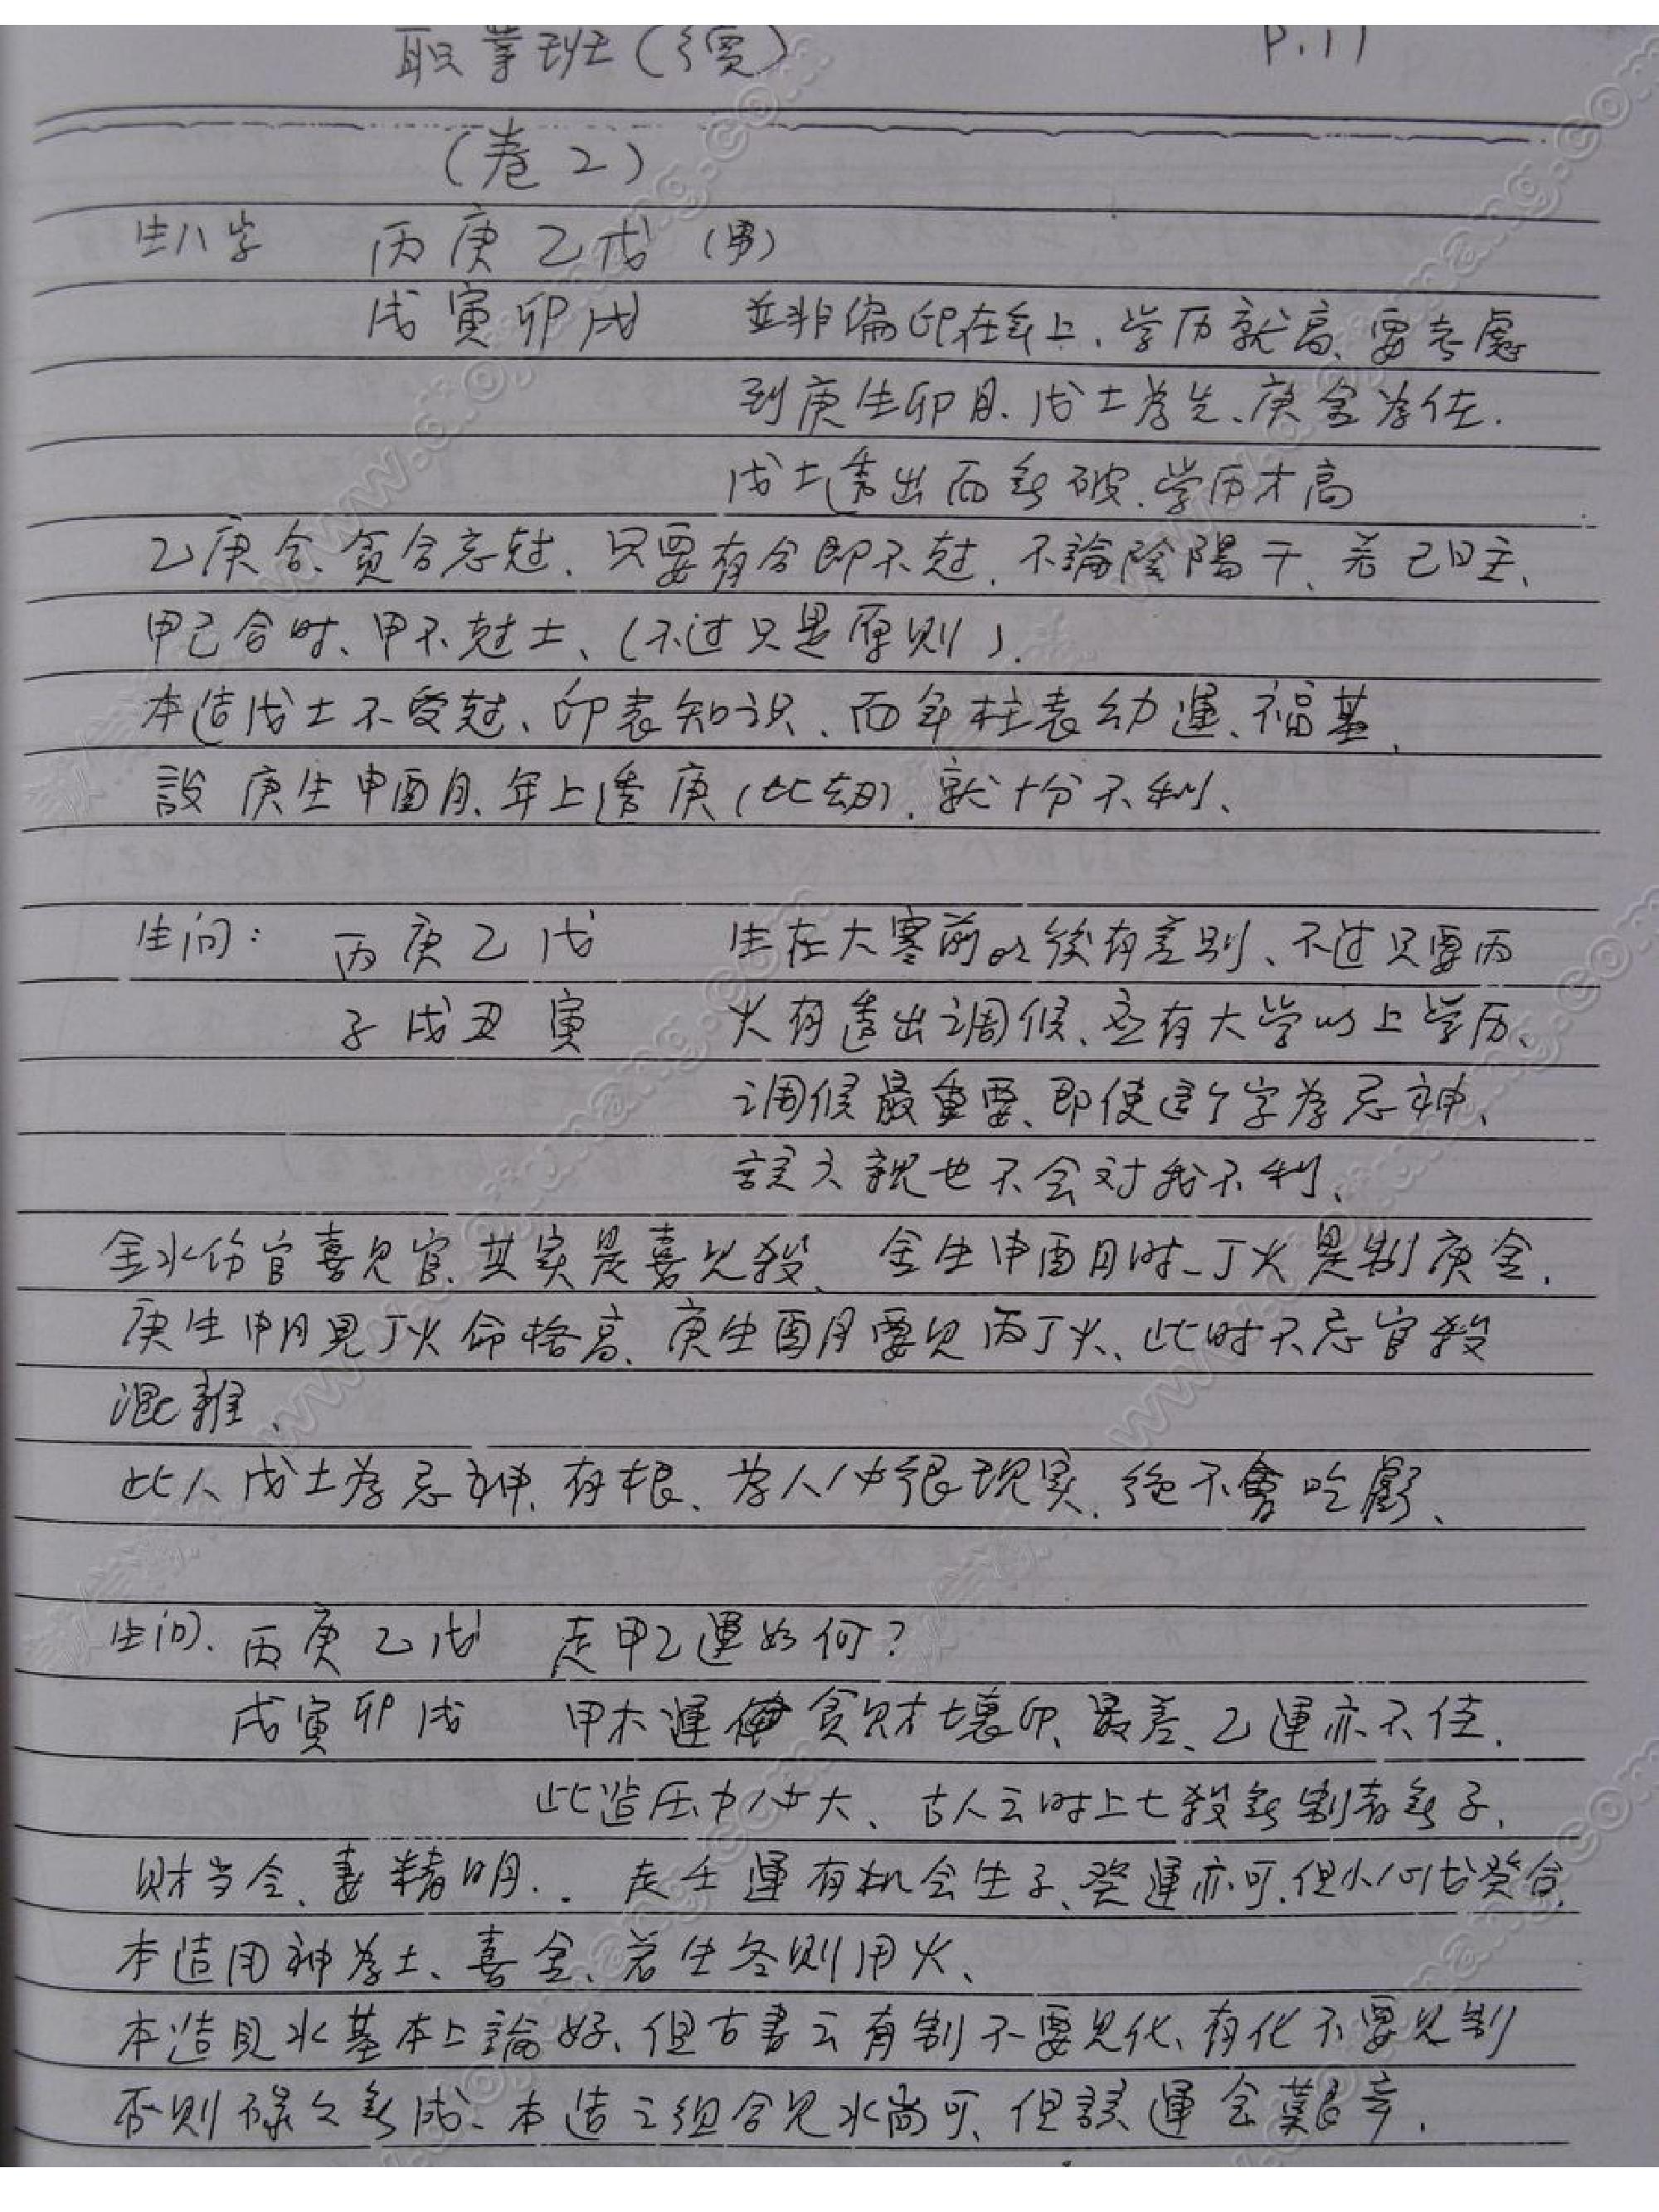 职業班(續) P.11
(卷2)
生八字 丙庚乙戊 (男)
戊寅卯戌 並非偏印在年上、学历就高、要考慮
到庚生卯月、戊土為先、庚金為佐.
戊土透出而無破、学历才高
乙庚合、貪合忘尅、只要有合即不尅、不論陰陽干、若己日主、
甲己合时、甲不尅土、(不过只是原则).
本造戊土不受尅、印表知识、而年柱表幼運、福基、
設庚生申酉月、年上透庚(比劫)、就十分不利、
生问: 丙庚乙戊 生在大寒前以後有差别、不过只要丙
子戌丑寅 火有透出调候、应有大学以上学历、
调候最重要、即使這个字為忌神、
該六親也不会对我不利、
金水伤官喜见官、其实是喜见殺、金生申酉月时、丁火是制庚金.
庚生申月見丁火命格高、庚生酉月要见丙丁火、此时不忌官殺
混雜、
此人戊土為忌神、有根、為人仲很现实、绝不會吃虧、
生问、丙庚乙戊 走甲乙運如何?
戌寅卯戌 甲木運 貪财壞印、最差、乙運亦不佳.
此造压力大、古人云时上七殺無制者無子.
财当令、妻精明.. 走壬運有机会生子、癸運亦可、但小心戊癸合.
本造用神為土、喜金、若生冬则用火、
本造見水基本上論好、但古書云有制不要见化、有化不要见制
否则禄久無成、本造之组合见水尚可、但該運会艱辛.